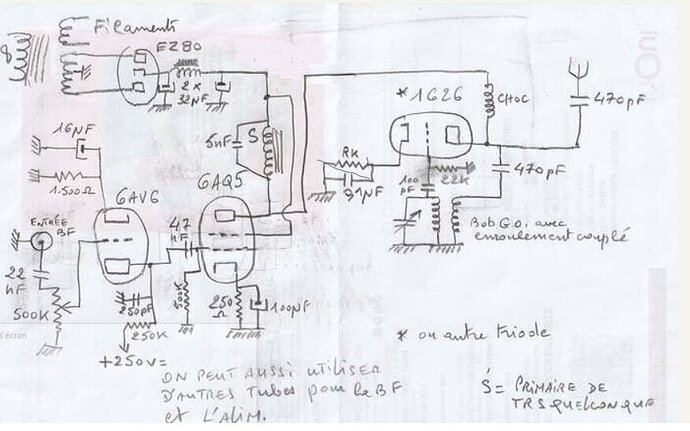 Filaments
EZ80
2 x
32µF
16µF
1.500Ω
6AV6
ENTRÉE
BF
22
nF
500K
250pF
250K
+250V=
47
nF
500K
6AQ5
5nF
S
250
Ω
100µF
* 1626
RK
0,1µF
100
pF
22K
CHOC
470pF
470pF
Bob G.O. avec
enroulement couplé
* ou autre triode
S = PRIMAIRE DE
TRS QUELCONQUE
ON PEUT AUSSI UTILISER
D'AUTRES TUBES pour la BF
et L'ALIM.
d'écran
Oui